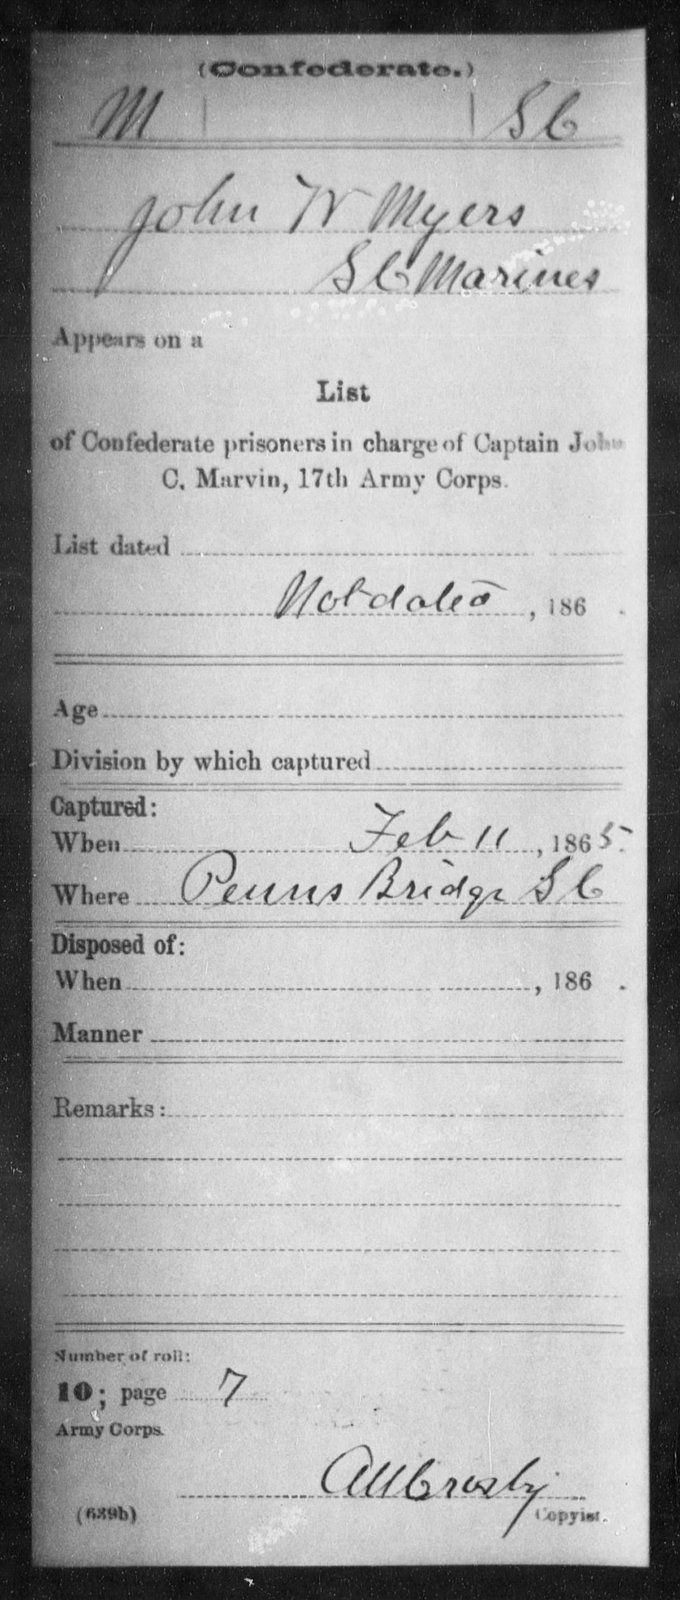 (Confederate.)
M | | S C
John W Myers
S C Marines
Appears on a
List
of Confederate prisoners in charge of Captain John
C. Marvin, 17th Army Corps.
List dated
Not dated, 186 .
Age
Division by which captured
Captured:
When Feb 11, 1865.
Where Penns Bridge S C
Disposed of:
When , 186 .
Manner
Remarks:
Number of roll:
10; page 7
Army Corps.
Crosby
(639b) Copyist.